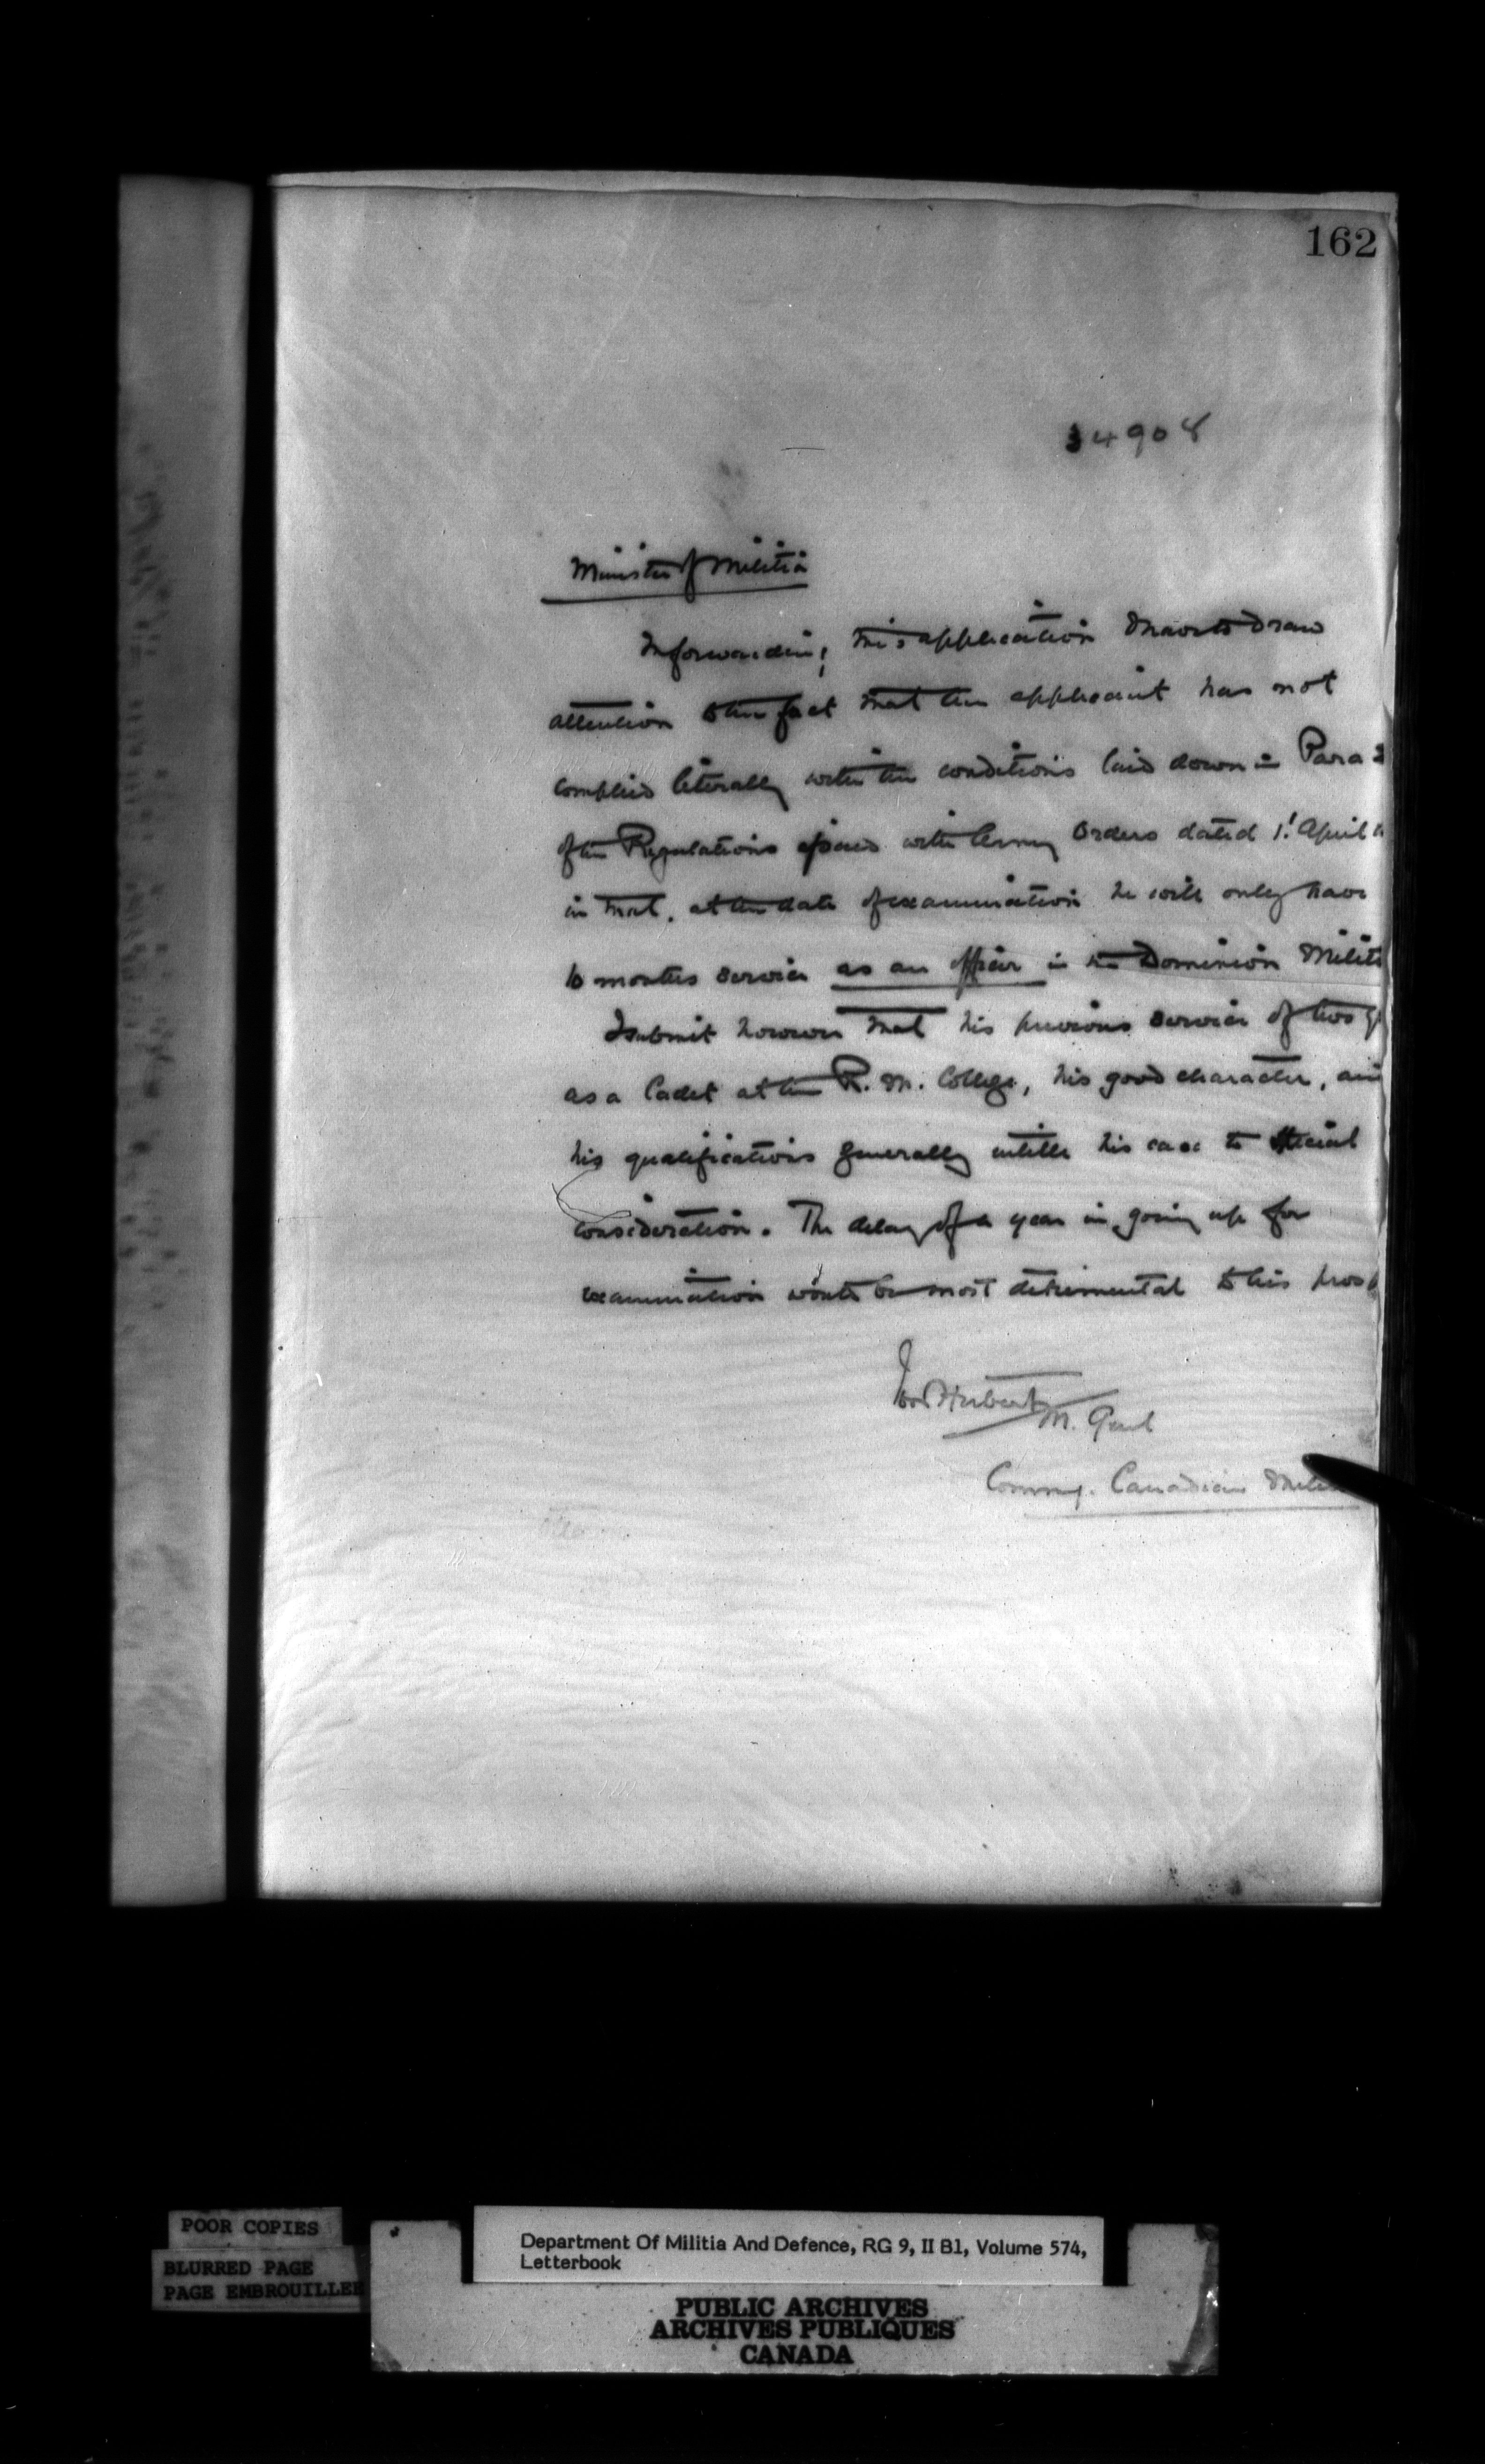 162
34908
Minister of Militia
In forwarding this application I have to draw
attention to the fact that the applicant has not
complied literally with the conditions laid down in Para
of the Regulations issued with Army Orders dated 1st April
in that, at the date of examination he will only have
10 months service as an officer in the Dominion Militi
I submit however that his previous service of two
as a Cadet at the R. M. College, his good character, and
his qualifications generally entitle his case to special
consideration. The delay of a year in going up for
examination would be most detrimental to his prosp
Ivor Herbert
M. Genl
Commg. Canadian Militi
POOR COPIES
BLURRED PAGE
PAGE EMBROUILLEE
Department Of Militia And Defence, RG 9, II B1, Volume 574,
Letterbook
PUBLIC ARCHIVES
ARCHIVES PUBLIQUES
CANADA